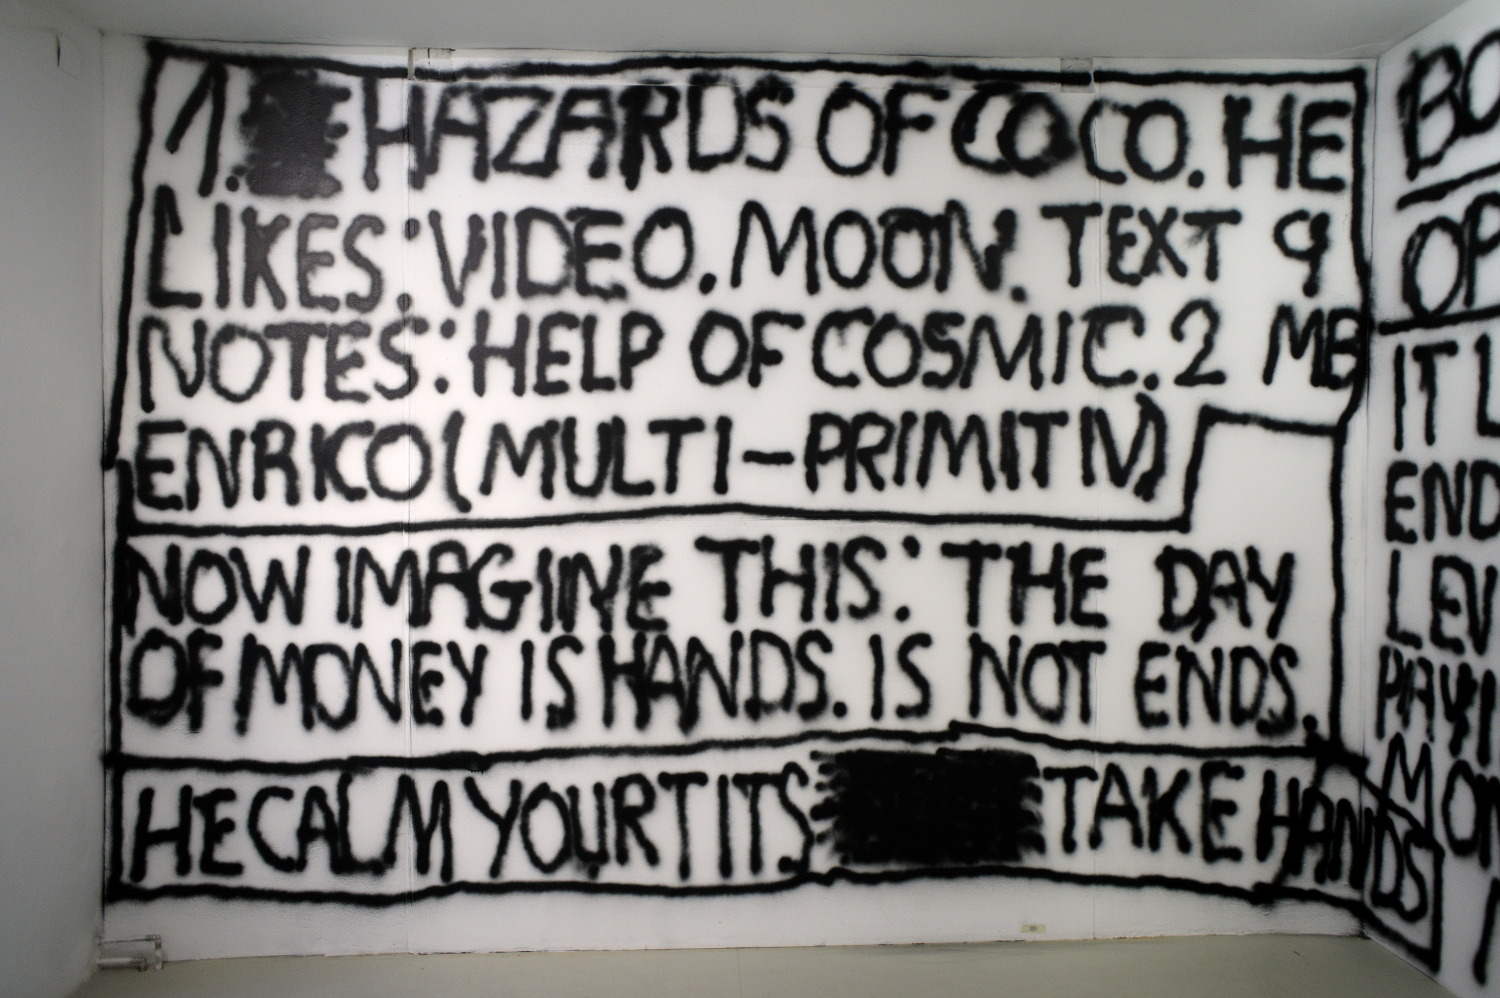 1. HAZARDS OF COCO. HE
LIKES: VIDEO. MOON. TEXT 9
NOTES: HELP OF COSMIC. 2 MB
ENRICO (MULTI-PRIMITIV)
NOW IMAGINE THIS: THE DAY
OF MONEY IS HANDS. IS NOT ENDS.
HE CALM YOUR TITS TAKE HANDS
BO
OP
IT L
END
LEV
PAYI
MON